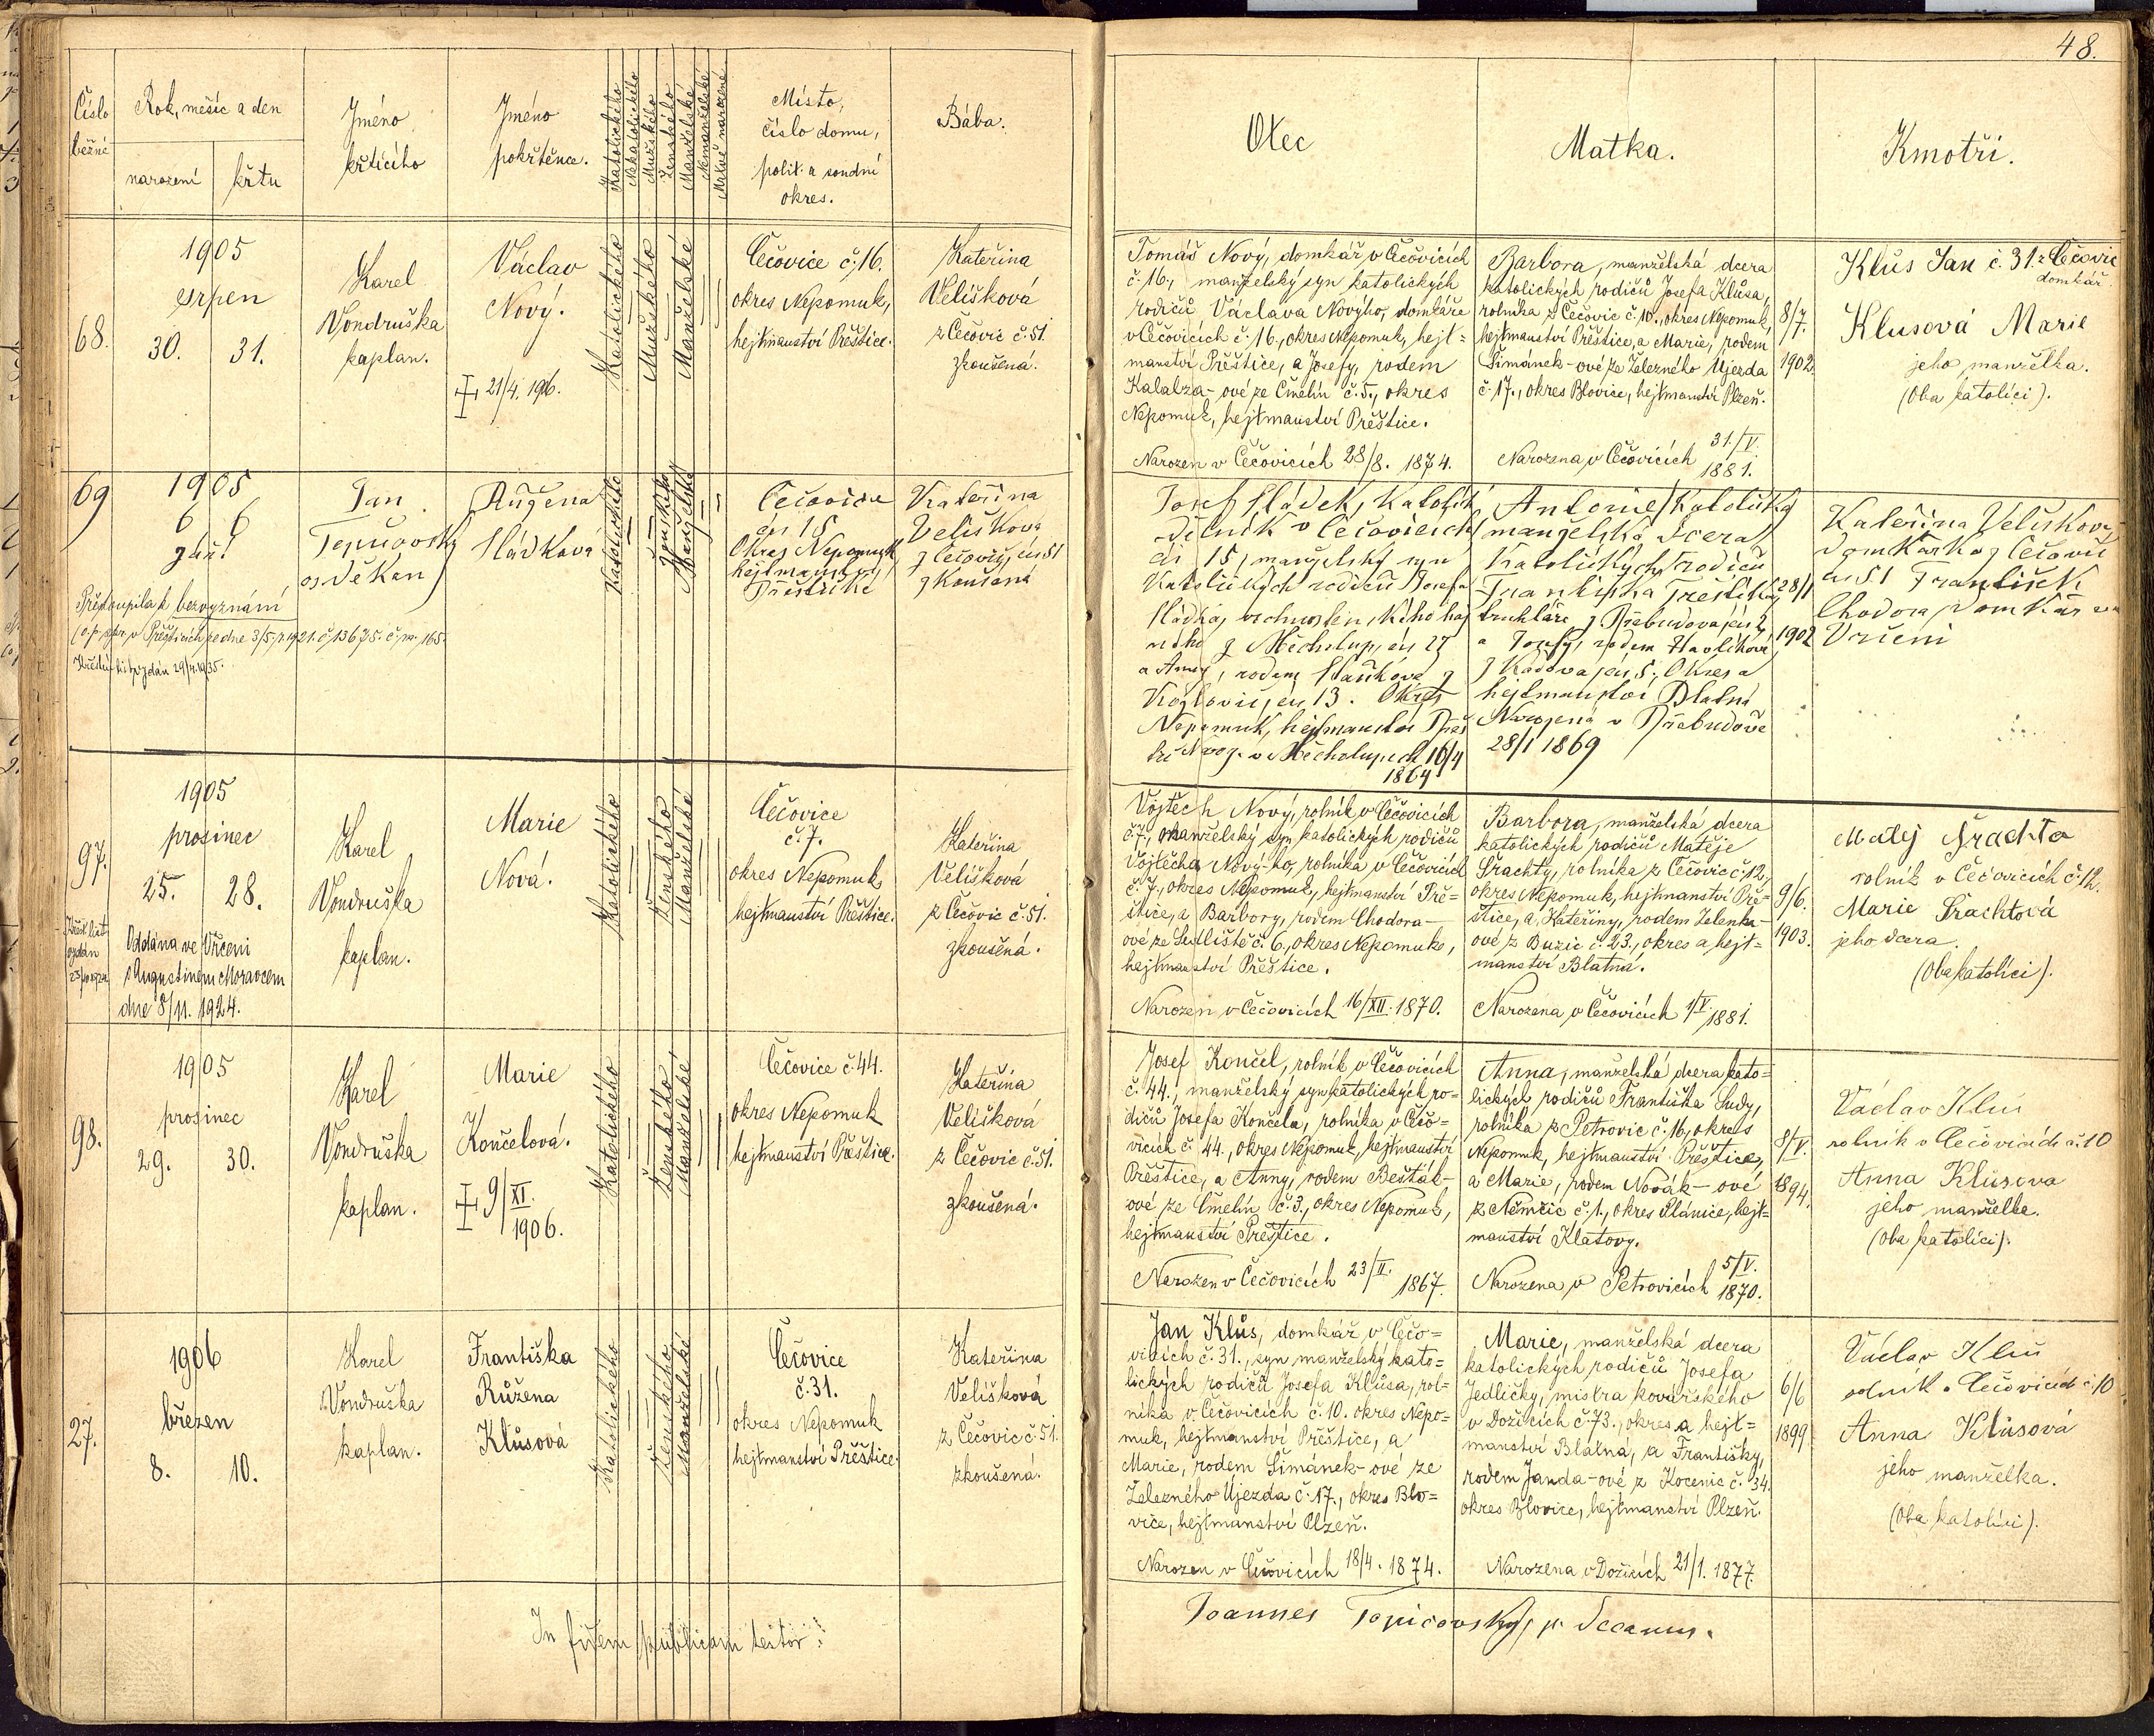 48.
Číslo běžné
Rok, měsíc a den
narození
křtu
Jméno křtícího
Jméno pokřtěnce.
Katolického
Nekatolického
Mužského
Ženského
Manželské
Nemanželské
Mrtvě narozené
Místo, číslo domu, polit. a soudní okres.
Bába.
Otec
Matka.
Kmotři.
68.
1905
srpen
30. 31.
Karel
Vondruška
kaplan.
Václav
Nový.
21/4. 1906.
Katolického
Mužského
Manželské
Čečovice č. 16.
okres Nepomuk,
hejtmanství Přeštice.
Kateřina
Velišková
z Čečovic č. 51.
zkoušená.
Tomáš Nový, domkář v Čečovicích
č. 16., manželský syn katolických
rodičů Václava Nového, domkáře
v Čečovicích č. 16., okres Nepomuk, hejt=
manství Přeštice, a Josefy, rodem
Kalabza-ové ze Čmelín č. 5., okres
Nepomuk, hejtmanství Přeštice.
Narozen v Čečovicích 28/8. 1874.
Barbora, manželská dcera
katolických rodičů Josefa Klůsa,
rolníka z Čečovic č. 10., okres Nepomuk,
hejtmanství Přeštice, a Marie, rodem
Šimánek-ové ze Železného Újezda
č. 17., okres Blovice, hejtmanství Plzeň.
Narozena v Čečovicích 31./V.
1881.
8/7.
1902.
Klůs Jan č. 31. z Čečovic
domkář.
Klusová Marie
jeho manželka.
(Oba katolíci).
69
1905
6 6
září
Jan
os. děkan
Růžena
Sládková
Katolického
Ženského
Manželské
Čečovice
čís 15
Okres Nepomuk
hejtmanství
Přeštické
Kateřina
Velišková
z Čečovic, čís 51
zkoušená
Přestoupila k bezvyznání
Josef Sládek, katolík
dělník v Čečovicích
čís 15, manželský syn
katolických rodičů Josefa
Sládka,
z Měcholup, čís 27
a Anny, rodem
čís 13. Okres
Nepomuk, hejtmanství Přeš
tice Naroz. v Měcholupech 16/4
1864
Antonie, katolička
manželská dcera
katolických rodičů
Františka
truhláře z
a Josefy, rodem Havlíkové
z čís 5. Okres a
hejtmanství Blatná
Narozená v
28/1 1869
28/1
1902
Kateřina Velišková
domkářka z Čečovic
čís 51 František
Chodora, domkář ve
Vrčeni
97.
1905
prosinec
25. 28.
Křest. list
vydán
Oddána ve Vrčeni
s Augustinem Moravcem
dne 8/11. 1924.
Karel
Vondruška
kaplan.
Marie
Nová.
Katolického
Ženského
Manželské
Čečovice
č. 7.
okres Nepomuk
hejtmanství Přeštice.
Kateřina
Velišková
z Čečovic č. 51.
zkoušená.
Vojtěch Nový, rolník v Čečovicích
č. 7., manželský syn katolických rodičů
Vojtěcha Nový-ho, rolníka v Čečovicích
č. 7., okres Nepomuk, hejtmanství Pře-
štice, a Barbory, rodem Chodora-
ové ze Sedliště č. 6, okres Nepomuk,
hejtmanství Přeštice.
Narozen v Čečovicích 16/XII. 1870.
Barbora, manželská dcera
katolických rodičů Matěje
Šrachty, rolníka z Čečovic č. 12,
okres Nepomuk, hejtmanství Pře-
štice, a Kateřiny, rodem Zelenka-
ové z Buzic č. 23., okres a hejt=
manství Blatná.
Narozena v Čečovicích 1/V. 1881.
9/6.
1903.
Matěj Šrachta
rolník v Čečovicích č. 12.
Marie Šrachtová
jeho dcera.
(Oba katolíci).
98.
1905
prosinec
29. 30.
Karel
Vondruška
kaplan.
Marie
Končelová.
9/XI.
1906.
Katolického
Ženského
Manželské
Čečovice č. 44.
okres Nepomuk
hejtmanství Přeštice.
Kateřina
Velišková
z Čečovic č. 51.
zkoušená.
Josef Končel, rolník v Čečovicích
č. 44., manželský syn katolických ro-
dičů Josefa Končela, rolníka v Čečo-
vicích č. 44., okres Nepomuk, hejtmanství
Přeštice, a Anny, rodem Bešták-
ové ze Čmelín č. 3., okres Nepomuk,
hejtmanství Přeštice.
Narozen v Čečovicích 23/II. 1867.
Anna, manželská dcera kato=
lických rodičů Františka Sudy,
rolníka z Petrovic č. 16., okres
Nepomuk, hejtmanství Přeštice,
a Marie, rodem Novák-ové
z Němčic č. 1., okres Plánice, hejt=
manství Klatovy.
Narozena v Petrovicích 5/V. 1870.
8/V.
1894.
Václav Klus
rolník v Čečovicích č. 10
Anna Klusova
jeho manželka.
(Oba katolíci).
27.
1906
březen
8. 10.
Karel
Vondruška
kaplan.
Františka
Růžena
Klůsová
Katolického
Ženského
Manželské
Čečovice
č. 31.
okres Nepomuk
hejtmanství Přeštice.
Kateřina
Velišková
z Čečovic č. 51.
zkoušená.
Jan Klůs, domkář v Čečo=
vicích č. 31., syn manželský kato=
lických rodičů Josefa Klůsa, rol=
níka v Čečovicích č. 10. okres Nepo=
muk, hejtmanství Přeštice, a
Marie, rodem Šimánek-ové ze
Železného Újezda č. 17., okres Blo=
vice, hejtmanství Plzeň.
Narozen v Čečovicích 18/4. 1874.
Marie, manželská dcera
katolických rodičů Josefa
Jedličky, mistra kovářského
v Dožicích č. 73., okres a hejt=
manství Blatná, a Františky,
rodem Janda-ové z Kocenic č. 34.
okres Blovice, hejtmanství Plzeň.
Narozena v Dožicích 21/1. 1877.
6/6
1899
Václav Klus
rolník v Čečovicích č. 10
Anna Klůsová
jeho manželka.
(Oba katolíci).
In fidem publicam testor:
Joannes Topičovský, p. Decanus.